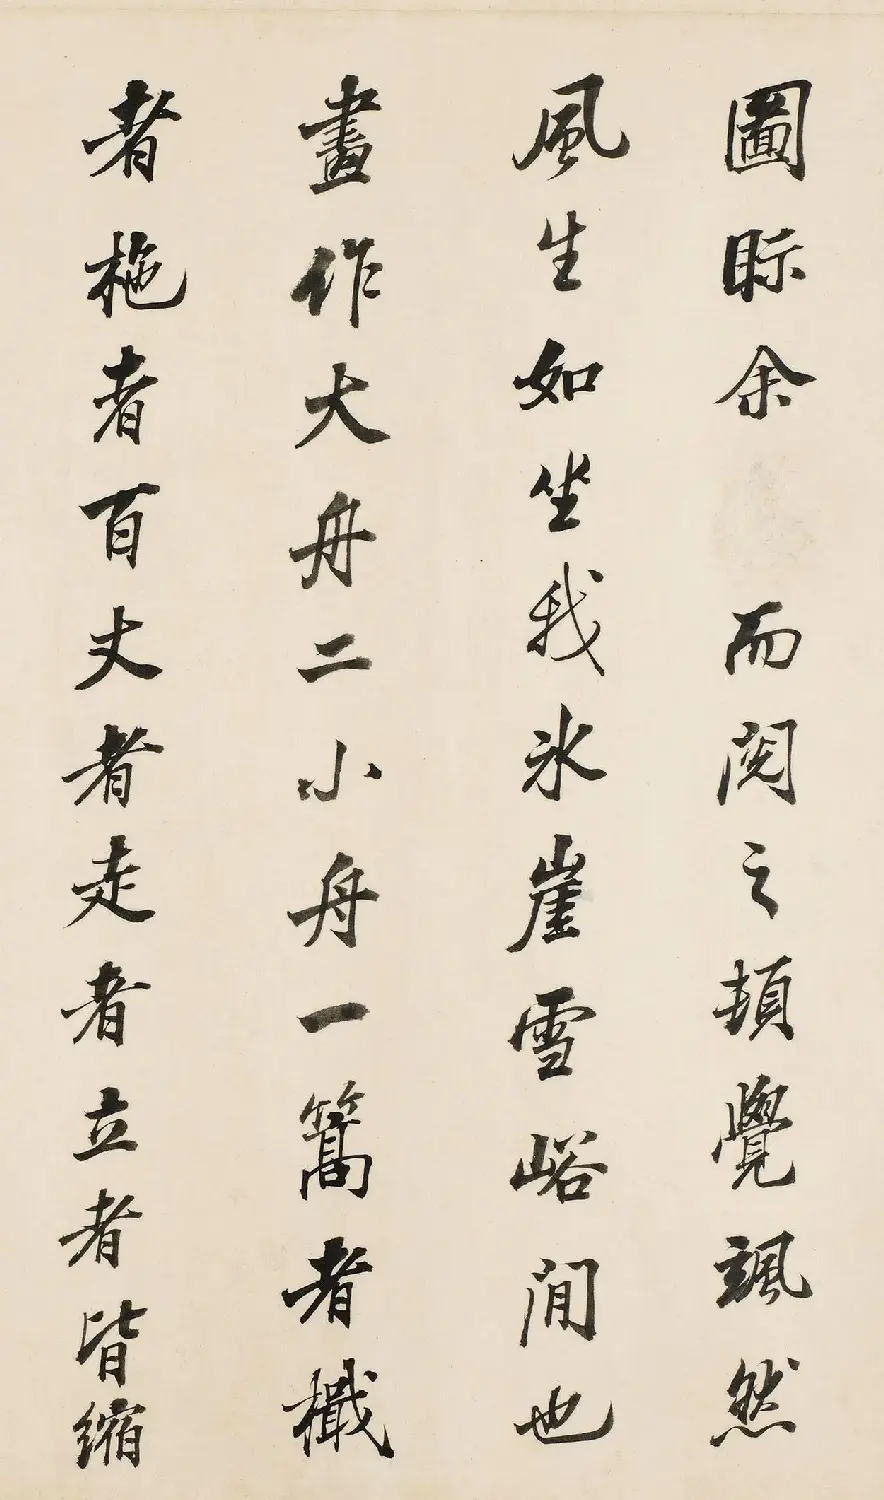 圖眎余而閱之頓覺颯然
風生如坐我冰崖雪峪間也
畫作大舟二小舟一篙者檝
者柂者百丈者走者立者皆縮